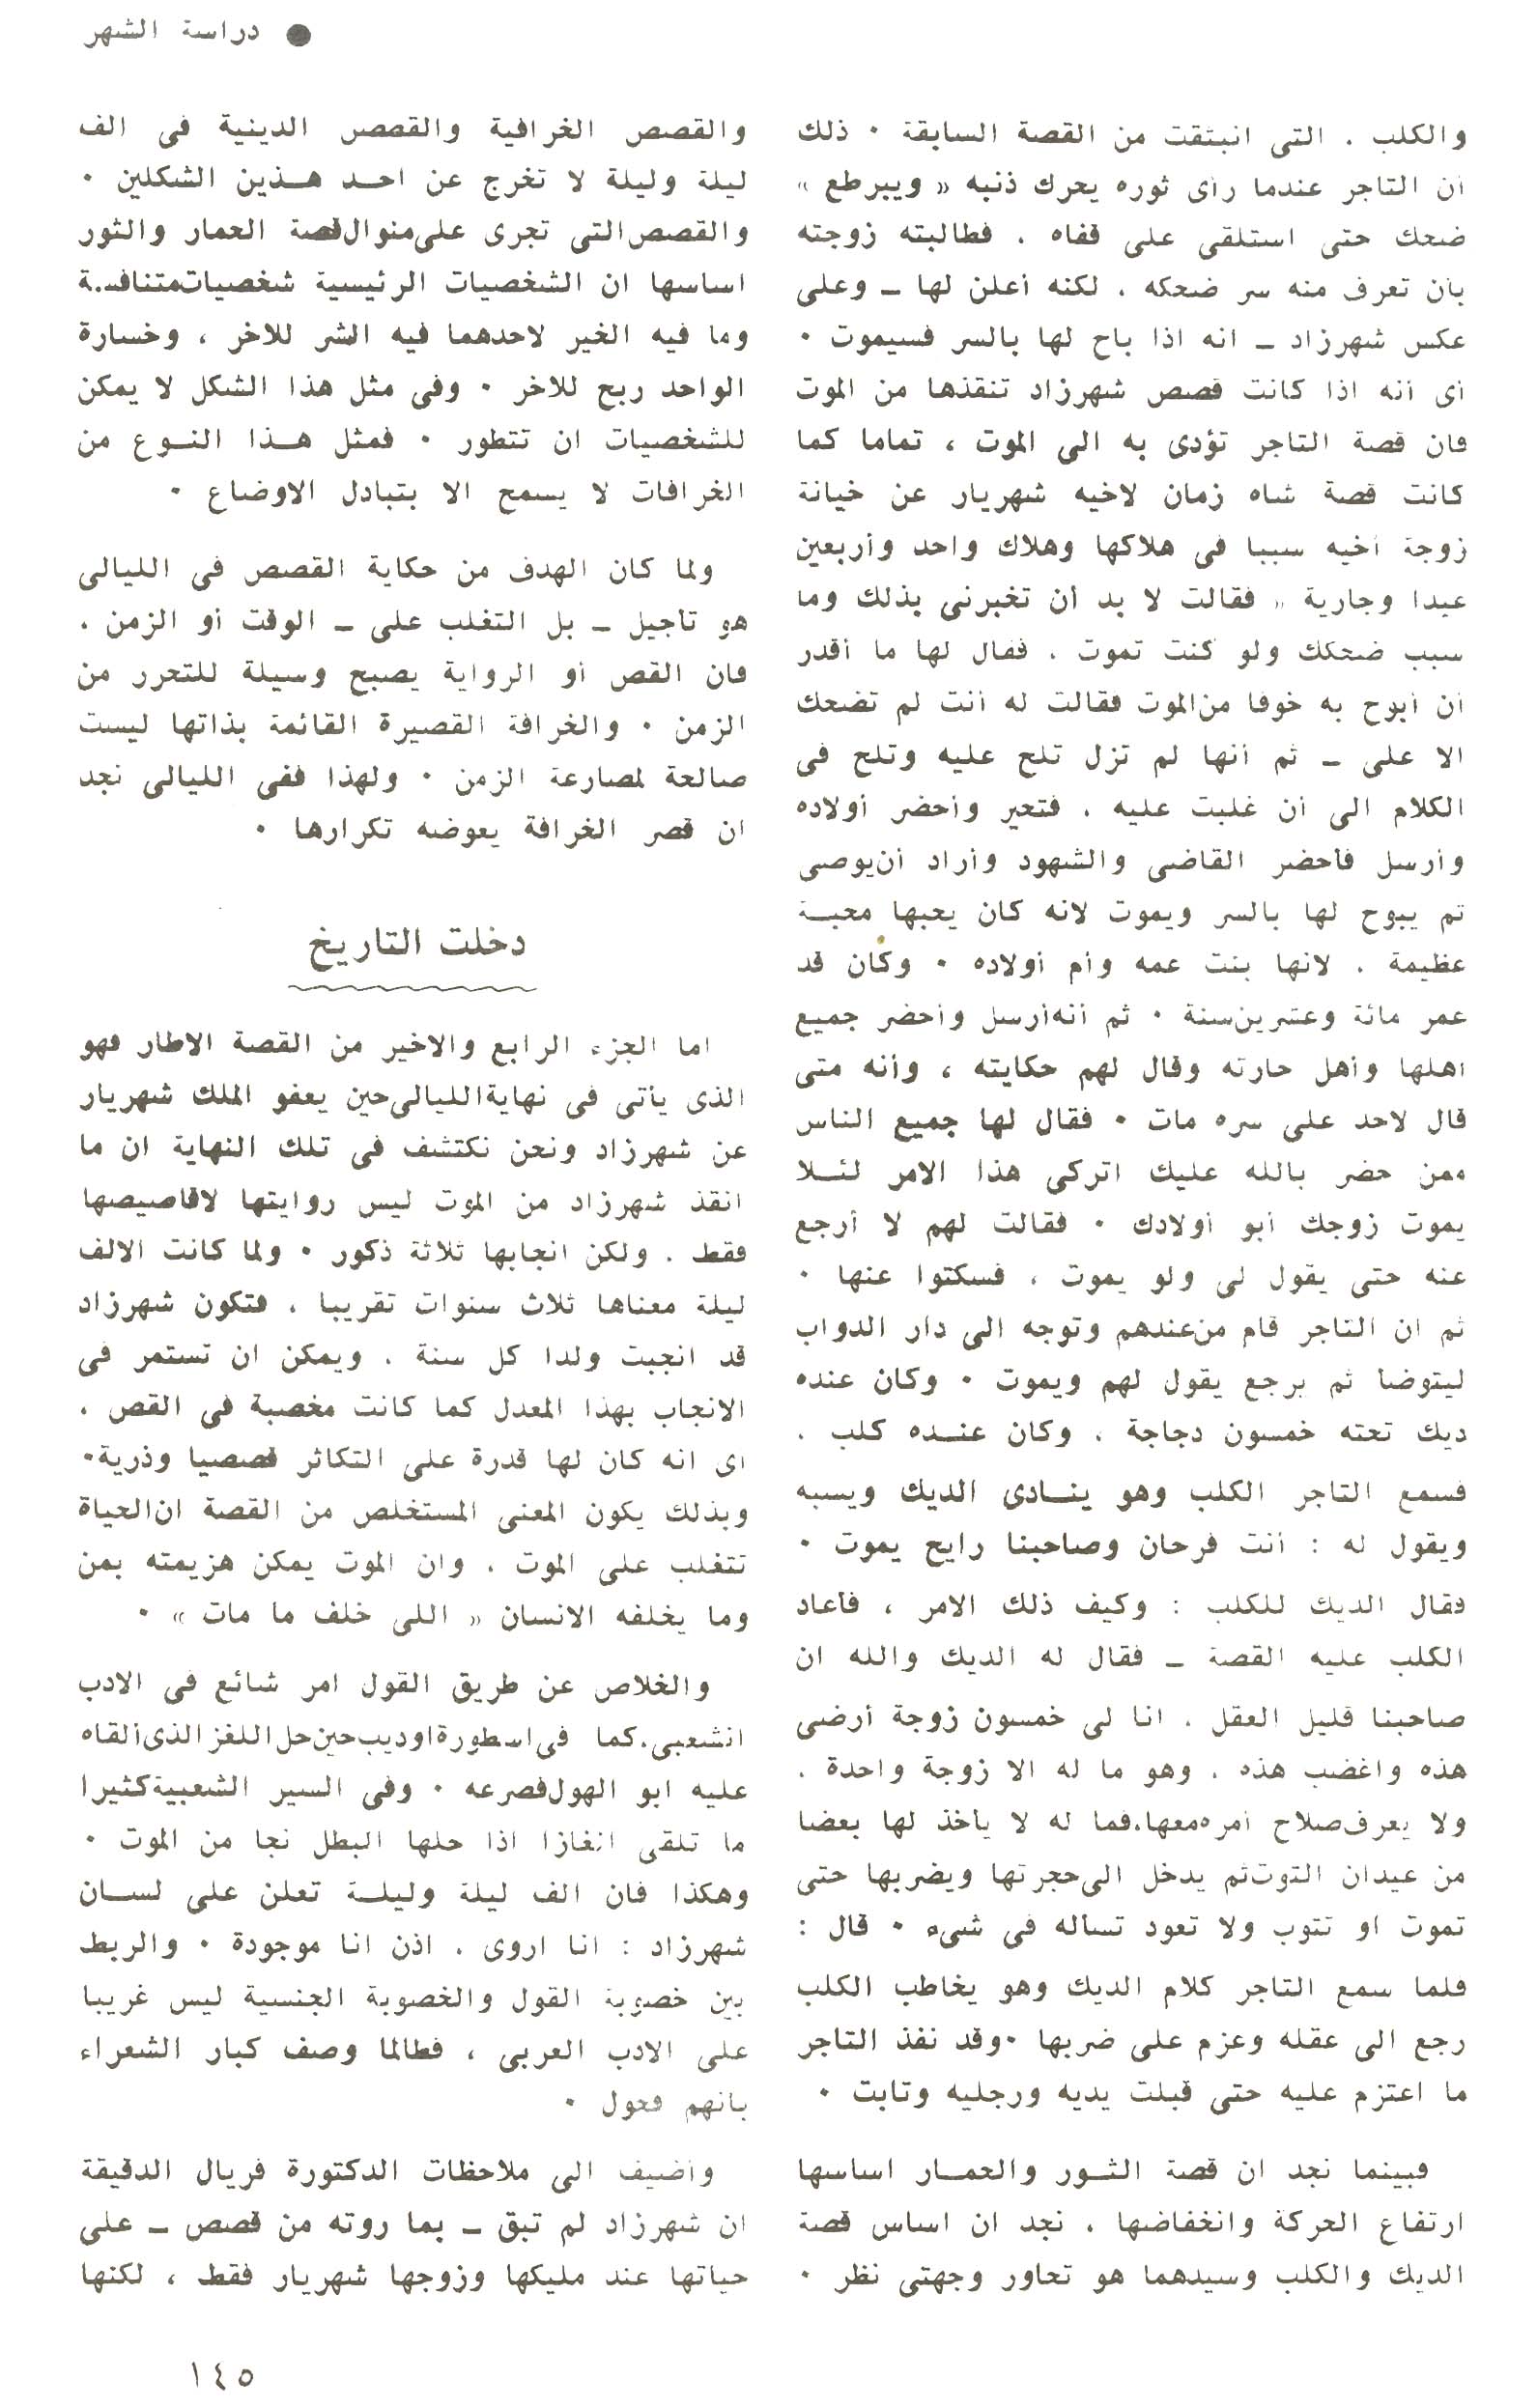 ● دراسة الشهر
والكلب . التى انبثقت من القصة السابقة ٠ ذلك
أن التاجر عندما رأى ثوره يحرك ذنبه « ويبرطع »
ضحك حتى استلقى على قفاه . فطالبته زوجته
بأن تعرف منه سر ضحكه . لكنه أعلن لها ــ وعلى
عكس شهرزاد ــ انه اذا باح لها بالسر فسيموت ٠
أى أنه اذا كانت قصص شهرزاد تنقذها من الموت
فان قصة التاجر تؤدى به الى الموت ، تماما كما
كانت قصة شاه زمان لاخيه شهريار عن خيانة
زوجة أخيه سببا فى هلاكها وهلاك واحد وأربعين
عبدا وجارية « فقالت لا بد أن تخبرنى بذلك وما
سبب ضحكك ولو كنت تموت . فقال لها ما أقدر
أن أبوح به خوفا من الموت فقالت له أنت لم تضحك
الا على ــ ثم أنها لم تزل تلح عليه وتلح فى
الكلام الى أن غلبت عليه . فتحير وأحضر أولاده
وأرسل فأحضر القاضى والشهود وأراد أن يوصى
ثم يبوح لها بالسر ويموت لانه كان يحبها محبــة
عظيمة . لانها بنت عمه وأم أولاده ٠ وكان قد
عمر مائة وعشرين سنة ٠ ثم أنه أرسل وأحضر جميع
أهلها وأهل حارته وقال لهم حكايته ، وأنه متى
قال لاحد على سره مات ٠ فقال لها جميع الناس
ممن حضر بالله عليك اتركى هذا الامر لئــلا
يموت زوجك أبو أولادك ٠ فقالت لهم لا أرجع
عنه حتى يقول لى ولو يموت ، فسكتوا عنها ٠
ثم ان التاجر قام من عندهم وتوجه الى دار الدواب
ليتوضأ ثم يرجع يقول لهم ويموت ٠ وكان عنده
ديك تحته خمسون دجاجة ، وكان عنــده كلب .
فسمع التاجر الكلب وهو ينــادى الديك ويسبه
ويقول له : أنت فرحان وصاحبنا رايح يموت ٠
فقال الديك للكلب : وكيف ذلك الامر ، فأعاد
الكلب عليه القصة ــ فقال له الديك والله ان
صاحبنا قليل العقل . انا لى خمسون زوجة أرضى
هذه واغضب هذه . وهو ما له الا زوجة واحدة .
ولا يعرف صلاح أمره معها.فما له لا يأخذ لها بعضا
من عيدان التوت ثم يدخل الى حجرتها ويضربها حتى
تموت او تتوب ولا تعود تسأله فى شىء ٠ قال :
فلما سمع التاجر كلام الديك وهو يخاطب الكلب
رجع الى عقله وعزم على ضربها ٠وقد نفذ التاجر
ما اعتزم عليه حتى قبلت يديه ورجليه وتابت ٠
فبينما نجد ان قصة الثــور والحمــار اساسها
ارتفاع الحركة وانخفاضها ، نجد ان اساس قصة
الديك والكلب وسيدهما هو تحاور وجهتى نظر ٠
والقصص الخرافية والقصص الدينية فى الف
ليلة وليلة لا تخرج عن احــد هــذين الشكلين ٠
والقصص التى تجرى على منوال قصة الحمار والثور
اساسها ان الشخصيات الرئيسية شخصيات متنافسة
وما فيه الخير لاحدهما فيه الشر للاخر ، وخسارة
الواحد ربح للاخر ٠ وفى مثل هذا الشكل لا يمكن
للشخصيات ان تتطور ٠ فمثل هــذا النــوع من
الخرافات لا يسمح الا بتبادل الاوضاع ٠
ولما كان الهدف من حكاية القصص فى الليالى
هو تأجيل ــ بل التغلب على ــ الوقت أو الزمن .
فان القص أو الرواية يصبح وسيلة للتحرر من
الزمن ٠ والخرافة القصيرة القائمة بذاتها ليست
صالحة لمصارعة الزمن ٠ ولهذا ففى الليالى نجد
ان قصر الخرافة يعوضه تكرارها ٠
دخلت التاريخ
اما الجزء الرابع والاخير من القصة الاطار فهو
الذى يأتى فى نهاية الليالى حين يعفو الملك شهريار
عن شهرزاد ونحن نكتشف فى تلك النهاية ان ما
انقذ شهرزاد من الموت ليس روايتها لاقاصيصها
فقط . ولكن انجابها ثلاثة ذكور ٠ ولما كانت الالف
ليلة معناها ثلاث سنوات تقريبا ، فتكون شهرزاد
قد انجبت ولدا كل سنة . ويمكن ان تستمر فى
الانجاب بهذا المعدل كما كانت مخصبة فى القص .
اى انه كان لها قدرة على التكاثر قصصيا وذرية٠
وبذلك يكون المعنى المستخلص من القصة ان الحياة
تتغلب على الموت . وان الموت يمكن هزيمته بمن
وما يخلفه الانسان « اللى خلف ما مات » ٠
والخلاص عن طريق القول امر شائع فى الادب
الشعبى.كما فى اسطورة اوديب حين حل اللغز الذى ألقاه
عليه ابو الهول فصرعه ٠ وفى السير الشعبية كثيرا
ما تلقى الغازا اذا حلها البطل نجا من الموت ٠
وهكذا فان الف ليلة وليلــة تعلن على لســان
شهرزاد : انا اروى . اذن انا موجودة ٠ والربط
بين خصوبة القول والخصوبة الجنسية ليس غريبا
على الادب العربى ، فطالما وصف كبار الشعراء
بأنهم فحول ٠
وأضيف الى ملاحظات الدكتورة فريال الدقيقة
ان شهرزاد لم تبق ــ بما روته من قصص ــ على
حياتها عند مليكها وزوجها شهريار فقط ، لكنها
١٤٥